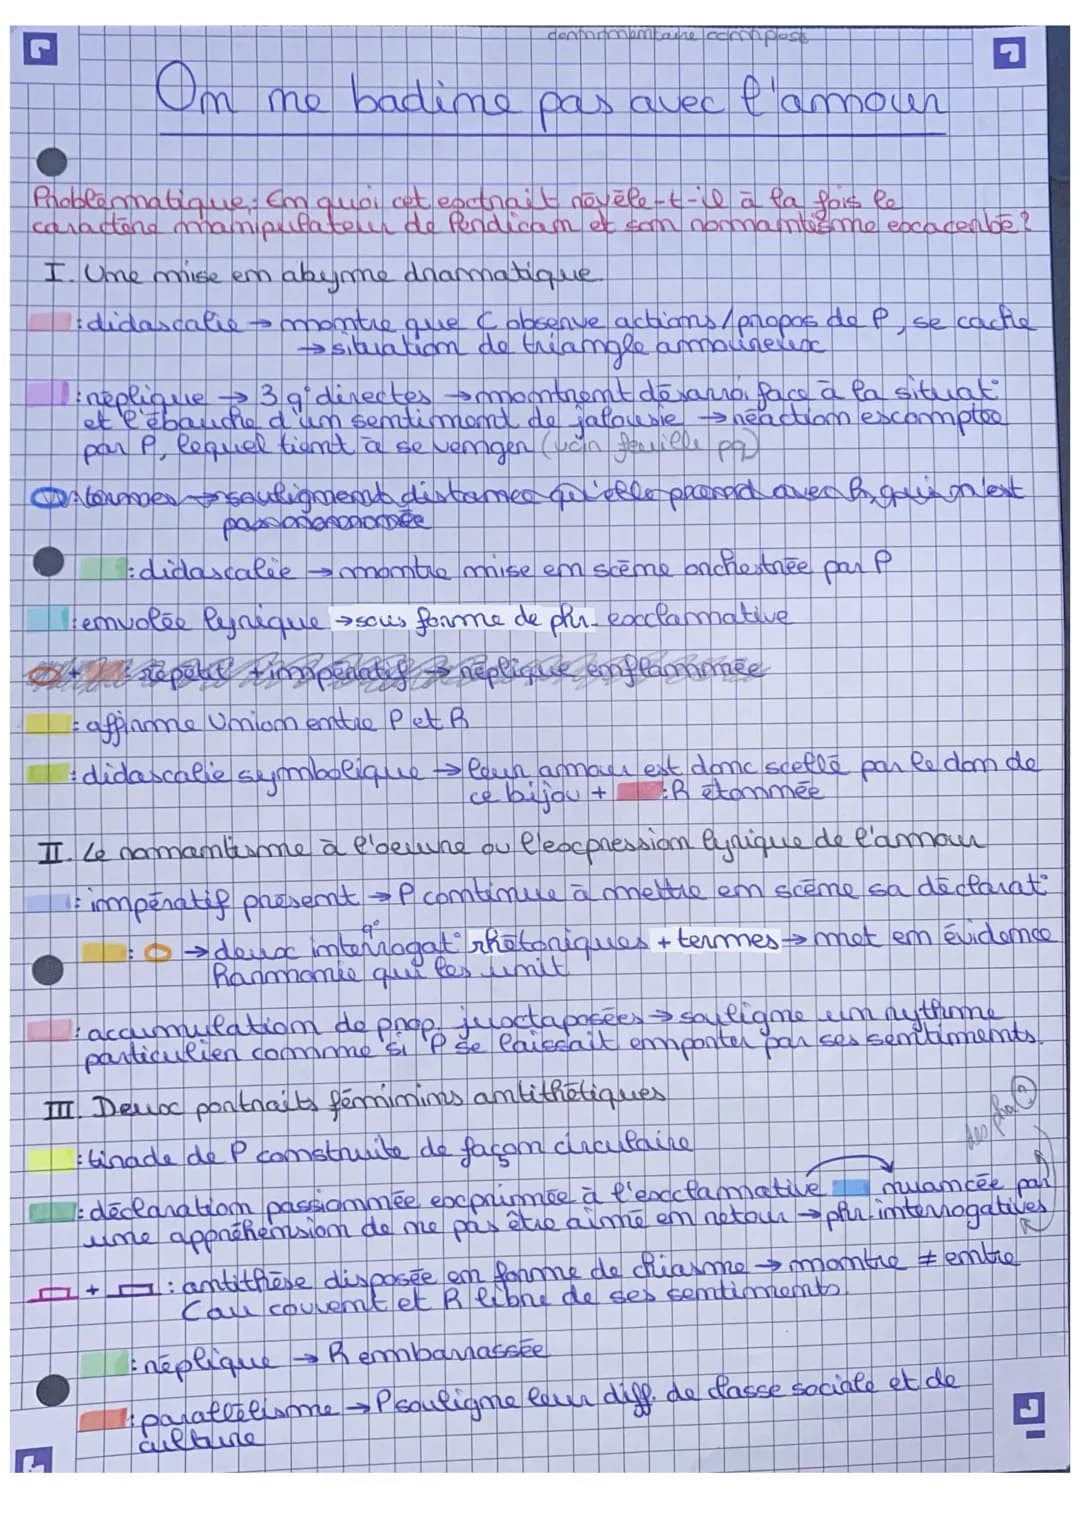 On ne badine pas avec l'amour
Problématique: En quoi cet extrait révèle-t-il à la fois le
caractère manipulateur de Perdican et son romantisme exacerbé?
I. Une mise en abyme dramatique.
: didascalie → montre que C observe actions/propos de P, se cache
→ situation de triangle amoureux
: réplique → 3 q° directes → montrent désarroi face à la situat°
et l'ébauche d'un sentiment de jalousie → réaction escomptée
par P, lequel tient à se venger (voir feuille pq)
: termes → soulignent distance qu'elle prend avec R, qui n'est
pas
: didascalie → montre mise en scène orchestrée par P
: envolée lyrique → sous forme de phr. exclamative
+ : répétit° + impératif → réplique enflammée
: affirme Union entre P et R
: didascalie symbolique → leur amour est donc scellé par le don de
ce bijou + : R étonnée
II. Le romantisme à l'oeuvre ou l'expression lyrique de l'amour
: impératif présent → P continue à mettre en scène sa déclarat°
q°
: → deux interrogat° rhétoriques + termes → met en évidence
Harmonie qui les unit
: accumulation de prop. juxtaposées → souligne un rythme
particulier comme si P se laissait emporter par ses sentiments.
III. Deux portraits féminins antithétiques
: tirade de P construite de façon circulaire
: déclaration passionnée exprimée à l'exclamative nuancée par
une appréhension de ne pas être aimé en retour → phr. interrogatives
+ : antithèse disposée en forme de chiasme → montre ≠ entre
C au couvent et R libre de ses sentiments.
: réplique → R embarrassée
: parallélisme → P souligne leur diff. de classe sociale et de
culture